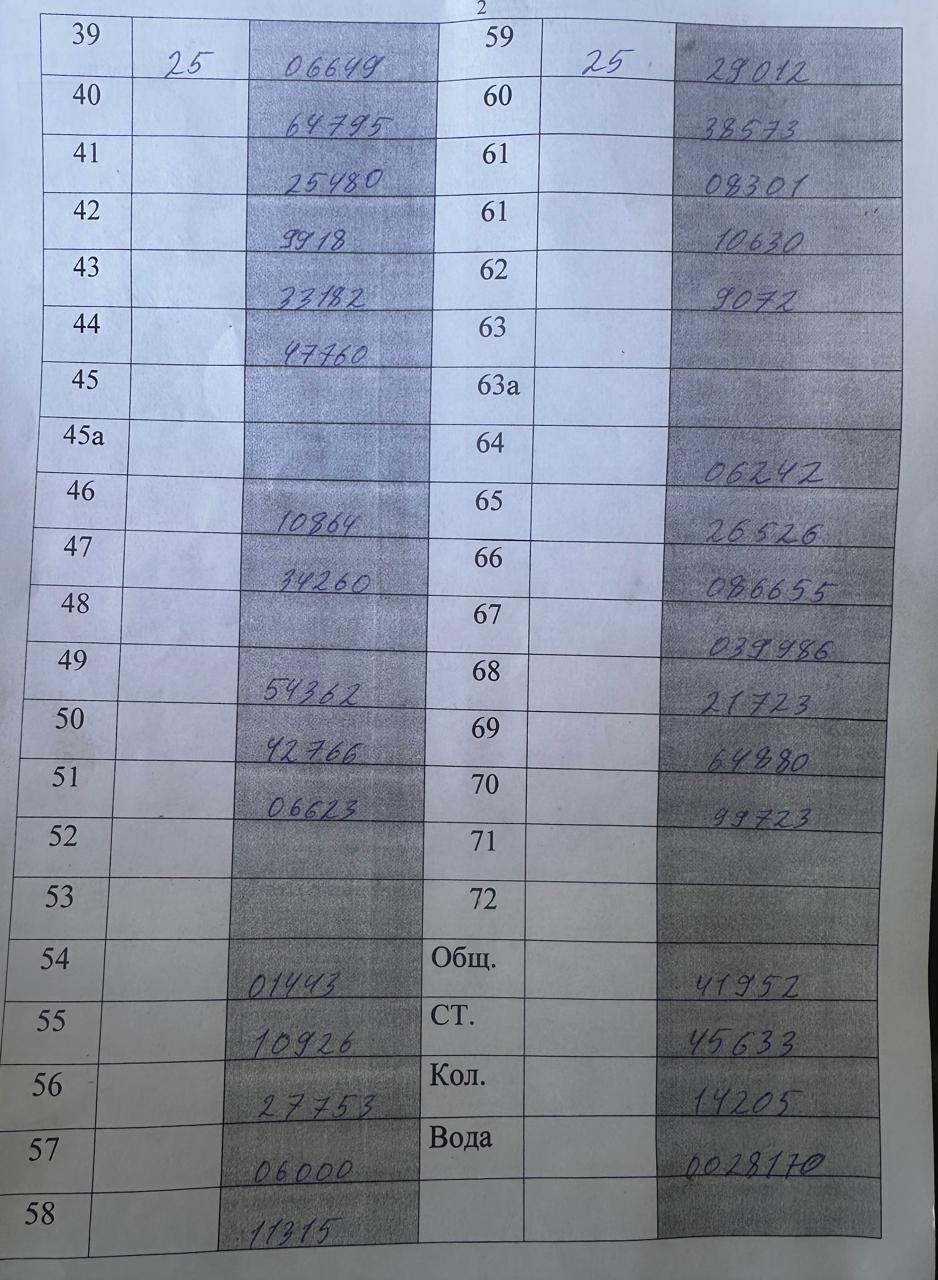 2
39 25 06649 59 25 29012
40 64795 60 38573
41 25480 61 08301
42 9918 61 10630
43 33182 62 9072
44 47760 63
45 63а
45а 64 06242
46 10864 65 26526
47 34260 66 086655
48 67 039986
49 54362 68 21723
50 42766 69 64880
51 06623 70 99723
52 71
53 72
54 01443 Общ. 41952
55 10926 СТ. 45633
56 27753 Кол. 14205
57 06000 Вода 0028170
58 11315